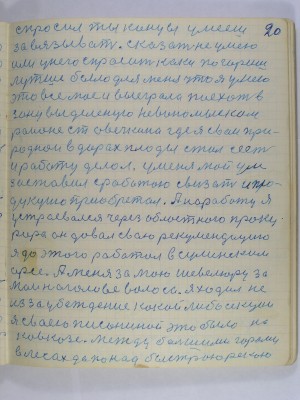 20
спросил ты канувя умееш
завязывать. сказать не умею
или у него спросить как погариш
лутше было для меня что я умею
это все мое и выеграло поехать в
сону выделеную невиномыском
районе ст овечкина где я сваи при-
родной в дарах плоды стал сеет
и работу делол. у меня мой ум
заставил с работою связать и про-
дукцию приобретал. А на работу я
устраевался через областного проку-
рора он довал сваю рекумендацию
я до этого работал в сулинским
орсе. А меня за мою шевелюру за
мои на голове волоса. Я ходил не
из за убеждение какой либо секции
я сваего писониной это было на
ковказе. Между большими горами
в лесах да по над быстрою рекою